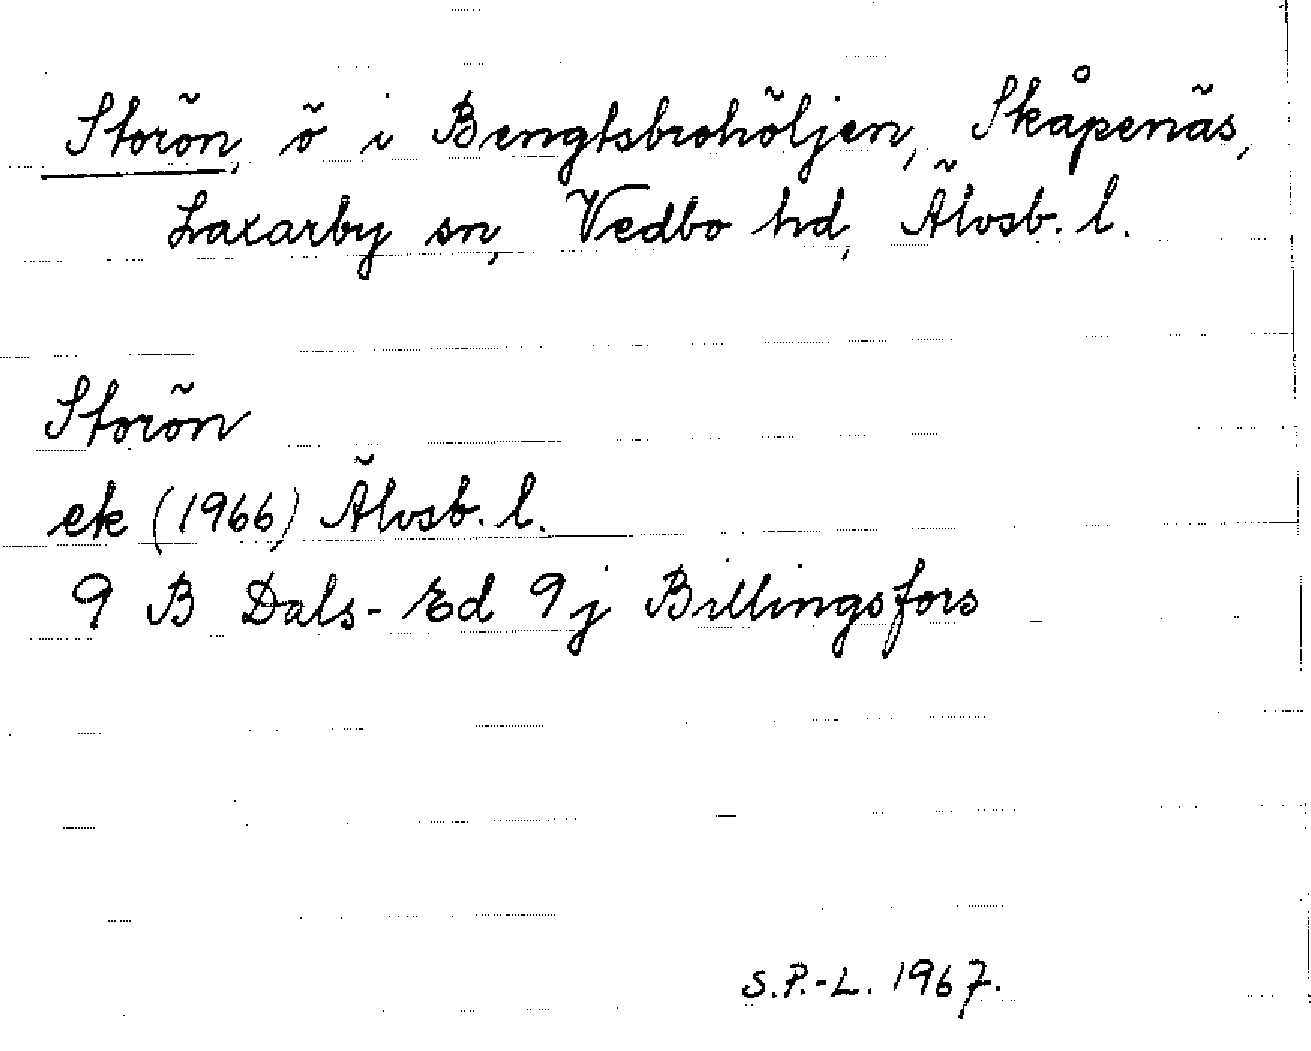 Storön, ö i Bengtsbrohöljen, Skåpenäs,
Laxarby sn, Vedbo hd, Älvsb. l.
Storön
ek (1966) Älvsb. l.
9 B Dals-Ed 9j Billingsfors
S.P.-L. 1967.